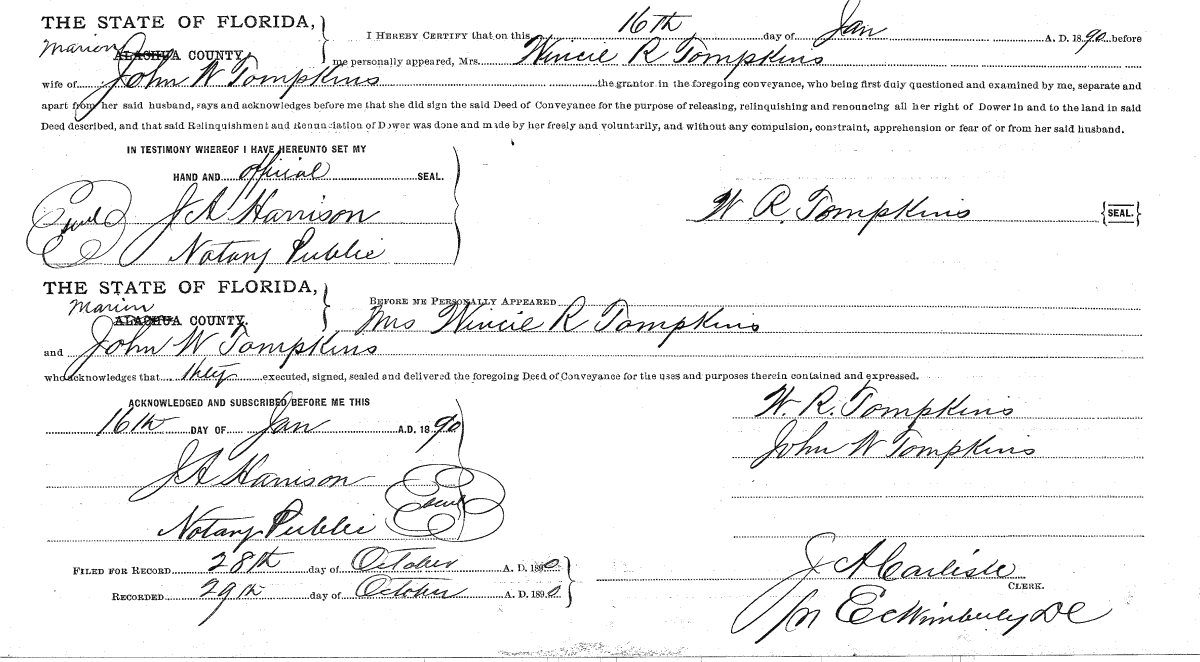 THE STATE OF FLORIDA,
Marion ALACHUA COUNTY.
I HEREBY CERTIFY that on this 16th day of Jan A. D. 1890 before
me personally appeared, Mrs. Wincie R Tompkins
wife of John W Tompkins the grantor in the foregoing conveyance, who being first duly questioned and examined by me, separate and
apart from her said husband, says and acknowledges before me that she did sign the said Deed of Conveyance for the purpose of releasing, relinquishing and renouncing all her right of Dower in and to the land in said
Deed described, and that said Relinquishment and Renunciation of Dower was done and made by her freely and voluntarily, and without any compulsion, constraint, apprehension or fear of or from her said husband.
IN TESTIMONY WHEREOF I HAVE HEREUNTO SET MY
HAND AND official SEAL.
Seal J A Harrison
Notary Public
W. R. Tompkins {SEAL.}
THE STATE OF FLORIDA,
Marion
ALACHUA COUNTY.
BEFORE ME PERSONALLY APPEARED
Mrs Wincie R Tompkins
and John W Tompkins
who acknowledges that they executed, signed, sealed and delivered the foregoing Deed of Conveyance for the uses and purposes therein contained and expressed.
ACKNOWLEDGED AND SUBSCRIBED BEFORE ME THIS
16th DAY OF Jan A.D. 1890
J A Harrison
Notary Public Seal
W. R. Tompkins
John W Tompkins
FILED FOR RECORD 28th day of October A. D. 1890
RECORDED 29th day of October A. D. 1890
J A Carlisle
CLERK.
E C Wimberly DC